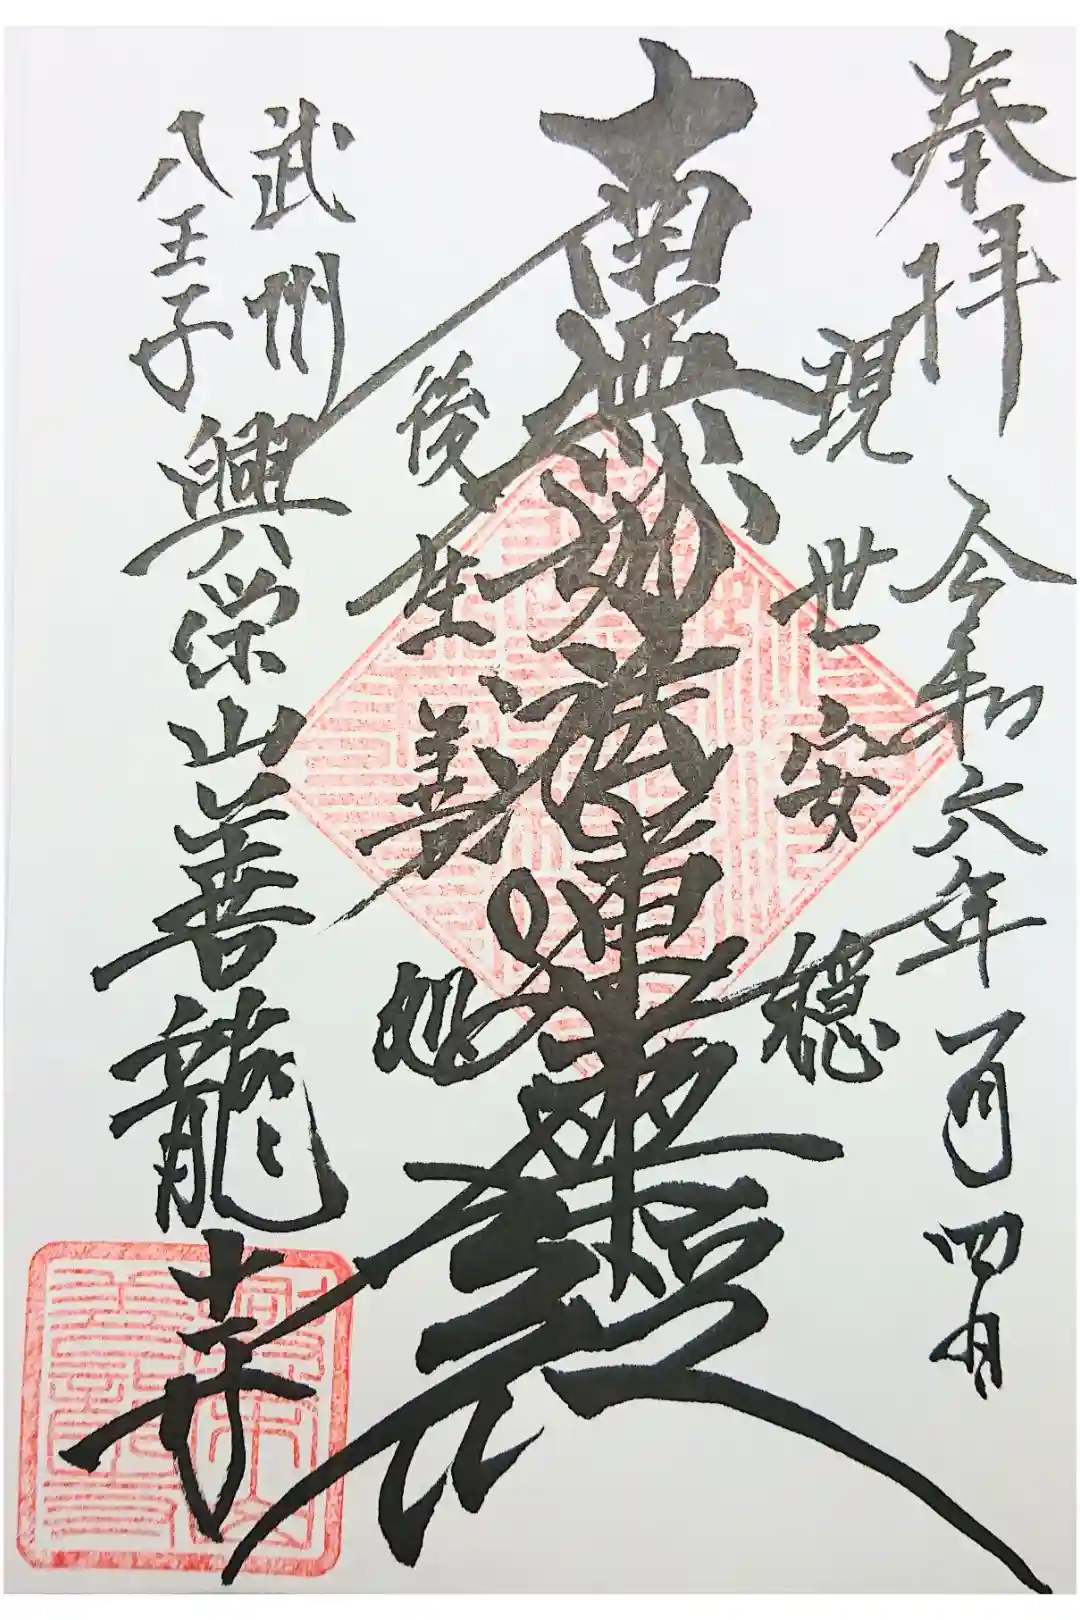 奉拝
令和六年一月四日
現世安穏
南無妙法蓮華経
後生善処
武州
八王子
興栄山善龍寺